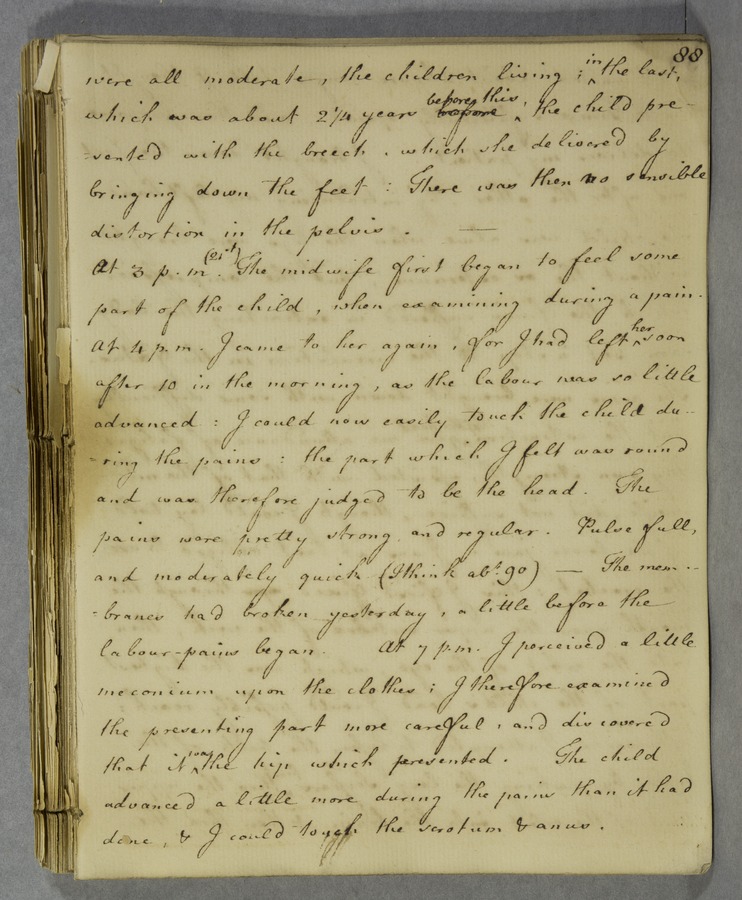 88
were all moderate, the children living ; in the last,
which was about 2 1/4 years before this, the child pre-
-sented with the breech. which she delivered by
bringing down the feet : There was then no sensible
distortion in the pelvis . —
At 3 p.m. (21st) The midwife first began to feel some
part of the child , when examining during a pain.
At 4 p.m. I came to her again , for I had left her soon
after 10 in the morning , as the labour was so little
advanced : I could now easily touch the child du-
-ring the pains : the part which I felt was round
and was therefore judged to be the head. The
pains were pretty strong and regular. Pulse full,
and moderately quick (I think abt. 90) — The mem-
-branes had broken yesterday , a little before the
labour-pains began. At 7 p.m. I perceived a little
meconium upon the clothes ; I therefore examined
the presenting part more careful , and discovered
that it was the hip which presented . The child
advanced a little more during the pains than it had
done , & I could touch the scrotum & anus .